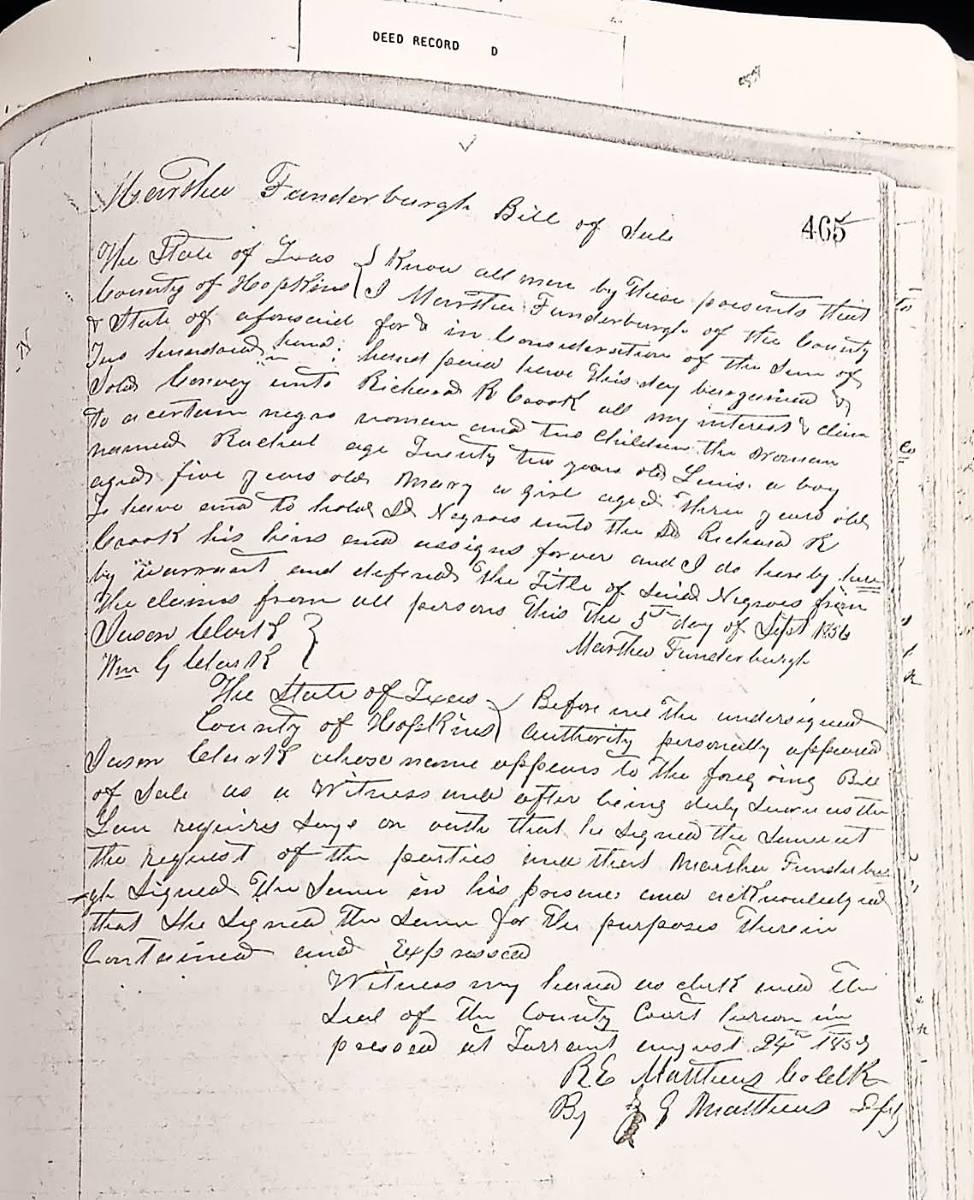 DEED RECORD D
Martha Funderburgh Bill of Sale
465
The State of Texas } Know all men by these presents that
County of Hopkins } I Martha Funderburgh of the County
& State of aforesaid for & in Consideration of the Sum of
Two hundred hand paid have this day bargained &
Sold Convey unto Richard R Crook all my interest & claim
to a certain negro woman and two children the woman
named Rachel age Twenty two years old Louis a boy
aged five years old Mary a girl aged three years old
To have and to hold Sd Negroes unto the Sd Richard R
Crook his heirs and assigns forever and I do hereby
by warrant and defend the Title of Said Negroes from
the claims from all persons this the 5th day of Sept 1856
Jason Clark } Martha Funderburgh
Wm G Clark
The State of Texas } Before me the undersigned
County of Hopkins } authority personally appeared
Jason Clark whose name appears to the foregoing Bill
of Sale as a Witness and after being duly Sworn as the
Law requires Says on oath that he Signed the Same at
the request of the parties and that Martha Funderbur
-gh Signed the Same in his presence and acknowledged
that She Signed the Same for the purposes therein
Contained and Expressed
Witness my hand as clerk and the
Seal of the County Court hereon im
pressed at Tarrant august 24th
R E Matthews Co Clk
By J Matthews Dpty